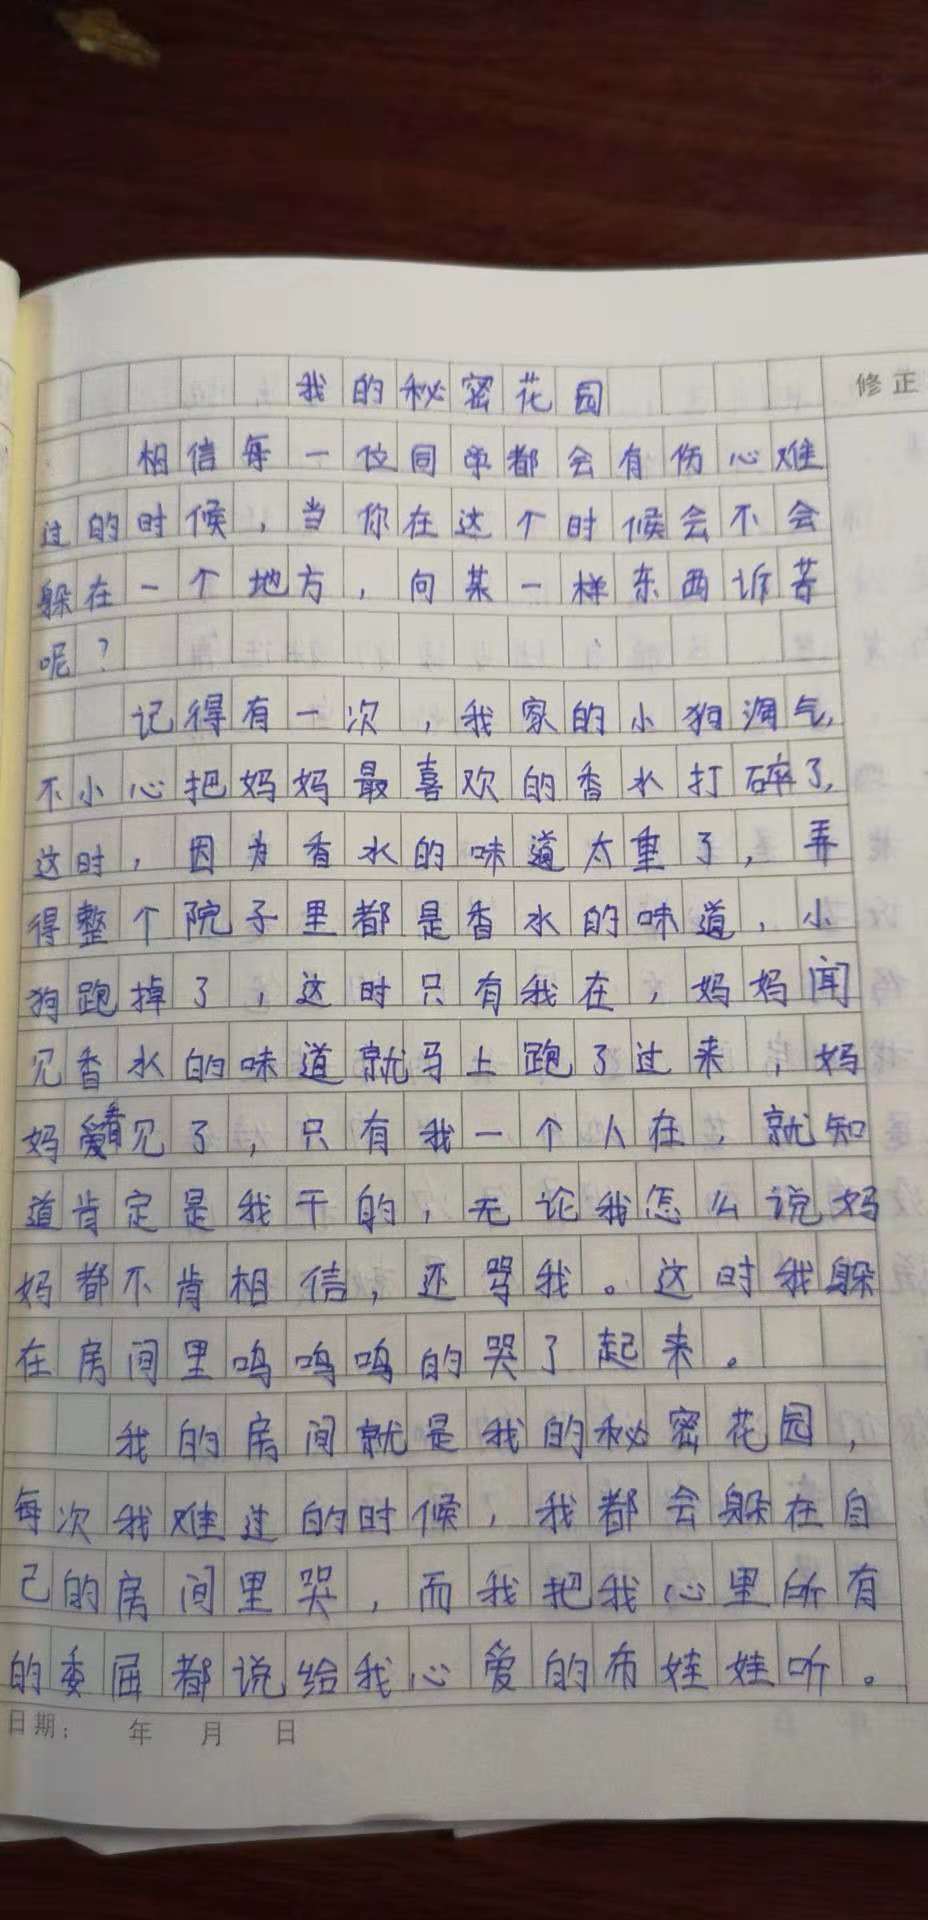 我的秘密花园
修正
相信每一位同学都会有伤心难
过的时候，当你在这个时候会不会
躲在一个地方，向某一样东西诉苦
呢？
记得有一次，我家的小狗淘气，
不小心把妈妈最喜欢的香水打碎了，
这时，因为香水的味道太重了，弄
得整个院子里都是香水的味道，小
狗跑掉了，这时只有我在，妈妈闻
见香水的味道就马上跑了过来，妈
妈看见了，只有我一个人在，就知
道肯定是我干的，无论我怎么说妈
妈都不肯相信，还骂我。这时我躲
在房间里呜呜呜的哭了起来。
我的房间就是我的秘密花园，
每次我难过的时候，我都会躲在自
己的房间里哭，而我把我心里所有
的委屈都说给我心爱的布娃娃听。
日期：　年　月　日